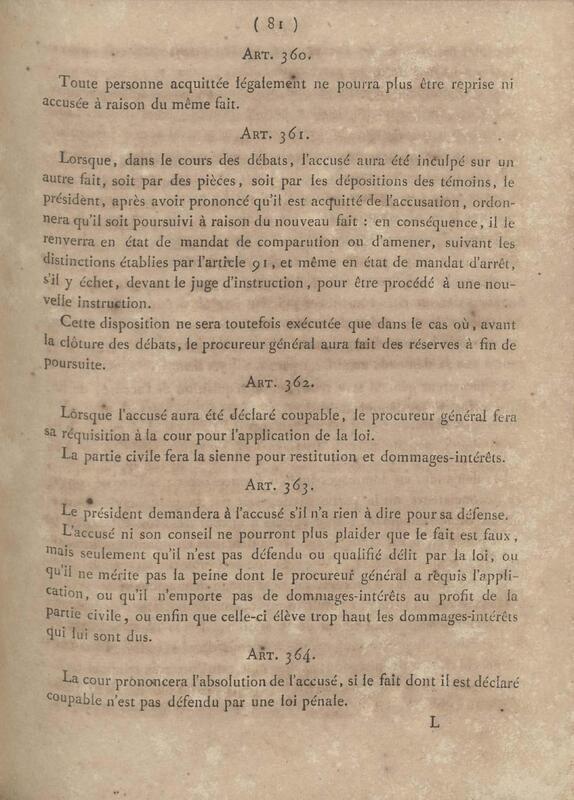 ( 81 )
ART. 360.
Toute personne acquittée légalement ne pourra plus être reprise ni
accusée à raison du même fait.
ART. 361.
Lorsque, dans le cours des débats, l'accusé aura été inculpé sur un
autre fait, soit par des pièces, soit par les dépositions des témoins, le
président, après avoir prononcé qu'il est acquitté de l'accusation, ordon-
nera qu'il soit poursuivi à raison du nouveau fait : en conséquence, il le
renverra en état de mandat de comparution ou d'amener, suivant les
distinctions établies par l'article 91, et même en état de mandat d'arrêt,
s'il y échet, devant le juge d'instruction, pour être procédé à une nou-
velle instruction.
Cette disposition ne sera toutefois exécutée que dans le cas où, avant
la clôture des débats, le procureur général aura fait des réserves à fin de
poursuite.
ART. 362.
Lorsque l'accusé aura été déclaré coupable, le procureur général fera
sa réquisition à la cour pour l'application de la loi.
La partie civile fera la sienne pour restitution et dommages-intérêts.
ART. 363.
Le président demandera à l'accusé s'il n'a rien à dire pour sa défense.
L'accusé ni son conseil ne pourront plus plaider que le fait est faux,
mais seulement qu'il n'est pas défendu ou qualifié délit par la loi, ou
qu'il ne mérite pas la peine dont le procureur général a requis l'appli-
cation, ou qu'il n'emporte pas de dommages-intérêts au profit de la
partie civile, ou enfin que celle-ci élève trop haut les dommages-intérêts
qui lui sont dus.
ART. 364.
La cour prononcera l'absolution de l'accusé, si le fait dont il est déclaré
coupable n'est pas défendu par une loi pénale.
L